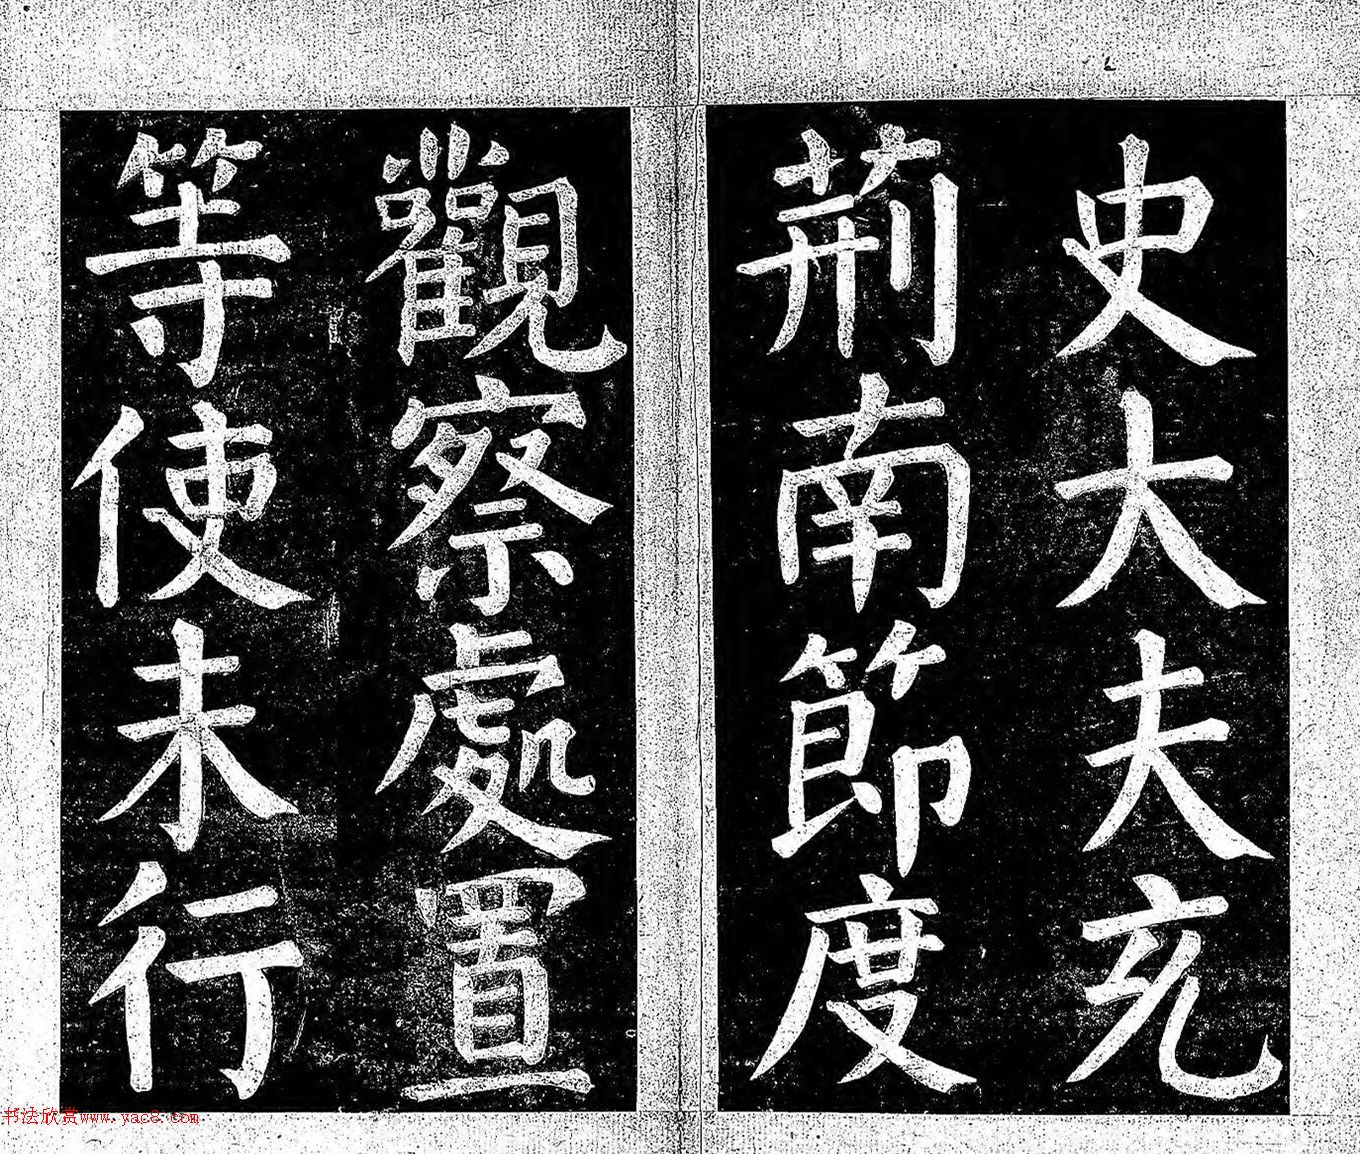 史大夫充
荊南節度
觀察處置
等使未行
书法欣赏www.yac8.com